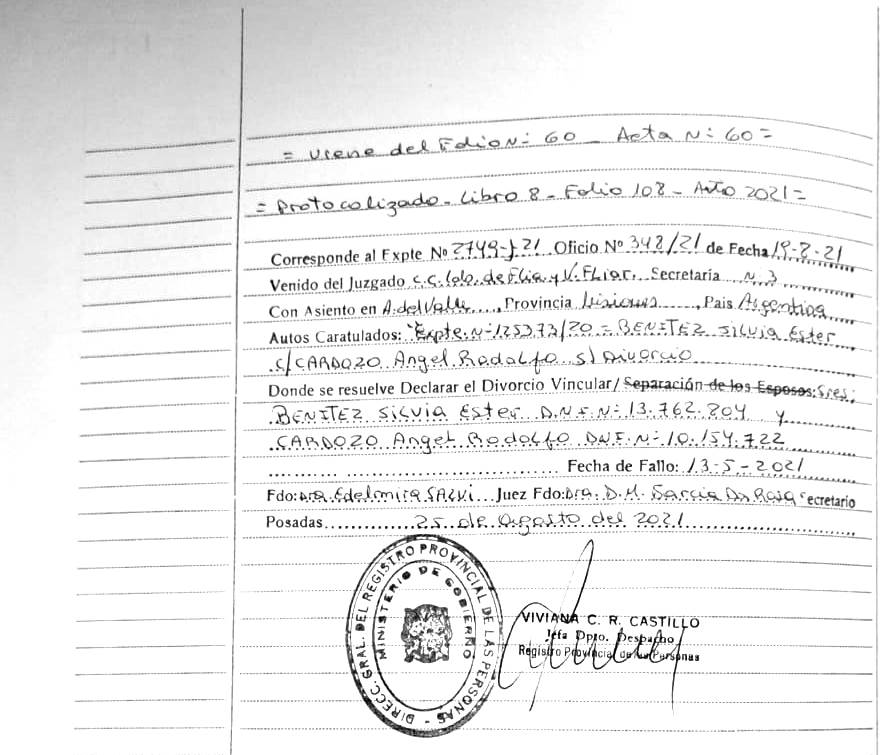 = Viene del Folio N: 60 _ Acta N: 60 =
= Protocolizado - Libro 8 - Folio 108 - Año 2021 =
Corresponde al Expte No 2749-J-21 Oficio Nº 348/21 de Fecha 19-8-21
Venido del Juzgado C.C. Lab. de Flia y V. Fliar. Secretaría N: 3
Con Asiento en A. del Valle, Provincia Misiones, Pais Argentina
Autos Caratulados: "Expte. N: 125373/20 = BENITEZ Silvia Ester
c/ CARDOZO Angel Rodolfo s/ Divorcio
Donde se resuelve Declarar el Divorcio Vincular/ Separación de los Esposos: Sres:
BENITEZ Silvia Ester D.N.I. N: 13.762.204 y
CARDOZO Angel Rodolfo DN.I. N: 10.154.722
Fecha de Fallo: 13-5-2021
Fdo: Dra. Edelmira SALVI Juez Fdo: Dra. D. M. Garcia Da Rosa ecretario
Posadas 25 de Agosto del 2021
DIRECC. GRAL. DEL REGISTRO PROVINCIAL DE LAS PERSONAS
MINISTERIO DE GOBIERNO
VIVIANA C. R. CASTILLO
Jefa Dpto. Despacho
Registro Provincial de las Personas